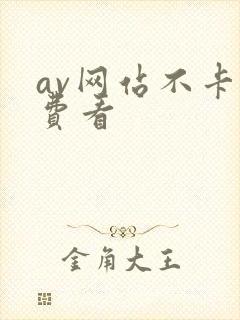 av网估不卡
費看
金角大王